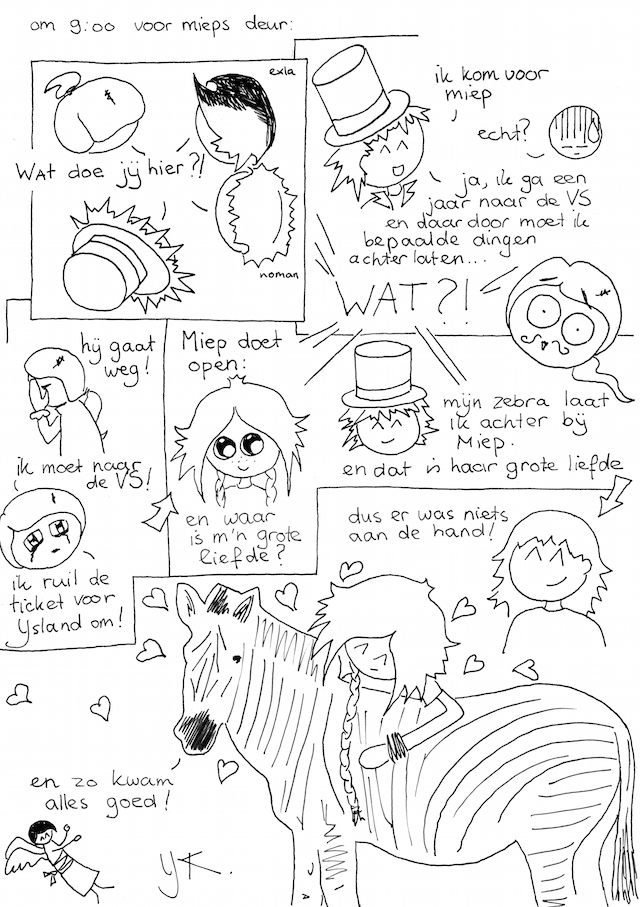 om 9:00 voor mieps deur:
exla
WAT doe jij hier?!
noman
ik kom voor
miep
echt?
ja, ik ga een
jaar naar de VS
en daar door moet ik
bepaalde dingen
achterlaten...
WAT?!
hij gaat
weg!
ik moet naar
de VS!
ik ruil de
ticket voor
IJsland om!
Miep doet
open:
en waar
is m'n grote
liefde?
mijn zebra laat
ik achter bij
Miep.
en dat is haar grote liefde
dus er was niets
aan de hand!
en zo kwam
alles goed!
YK.